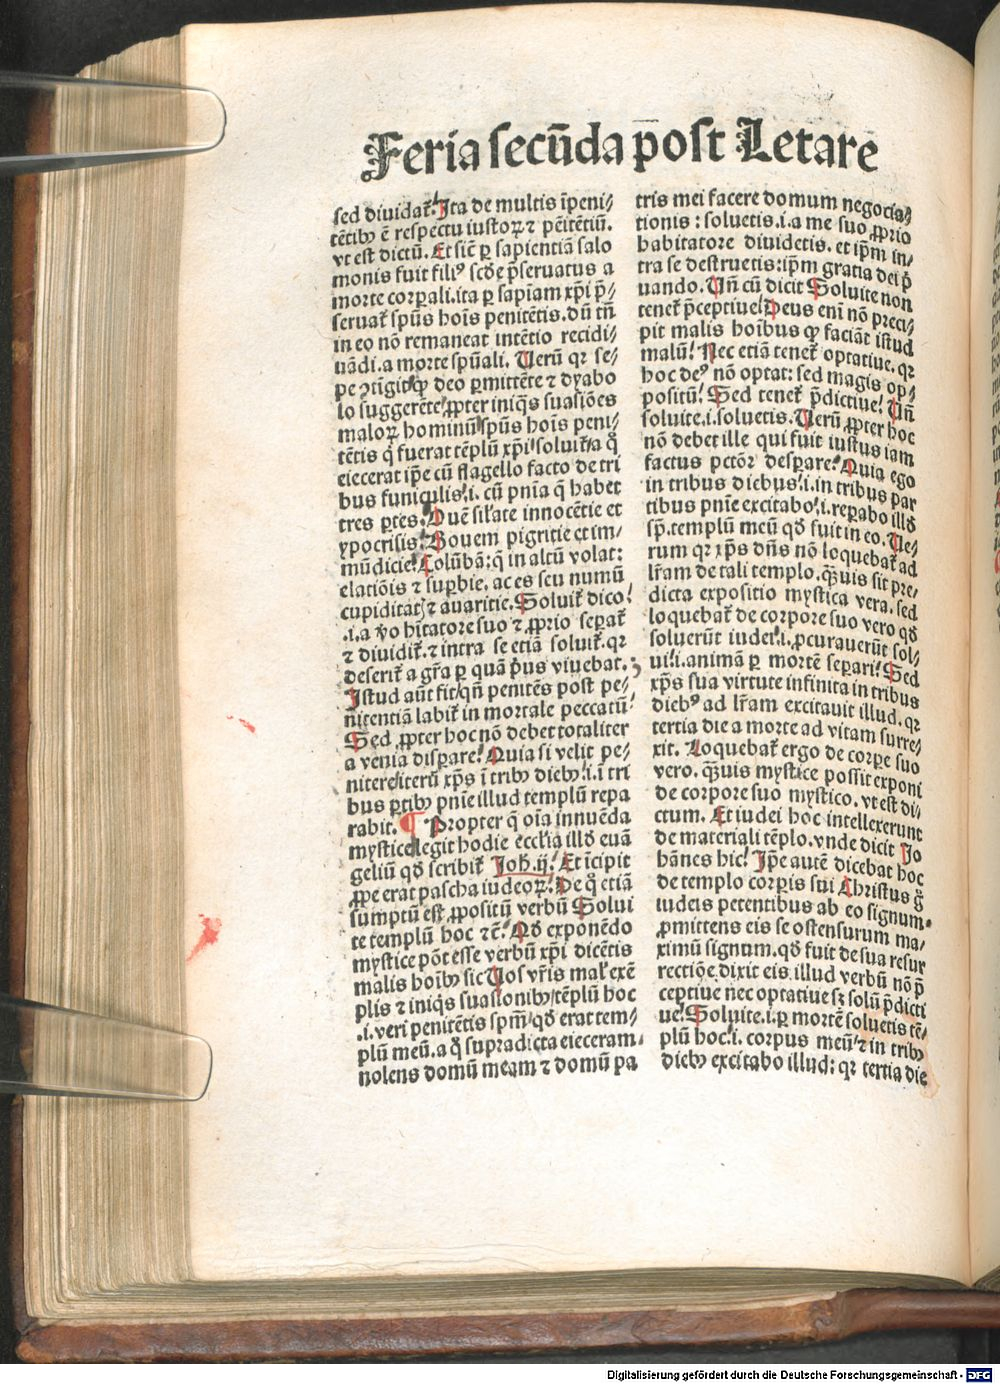 Feria secūda post Letare
sed diuidat᷑. Ita de multis īpeni⸗
tētibꝫ ē respectu iustoꝝ ⁊ pēitētiū.
vt est dictū. Et sic̄ ꝑ sapientiā salo
monis fuit filiꝰ scd̄e p̄seruatus a
morte corꝑali. ita ꝑ sapiam xp̄i p̄⸗
seruat᷑ spūs hoīs penitētis. dū tn̄
in eo nō remaneat intētio recidi⸗
uādi. a morte spūali. Uerū qꝛ se⸗
pe ↄtīgit ꝙ deo ꝑmittēte ⁊ dyabo
lo suggerēte ꝓpter iniq̄s suasiōes
maloꝝ hominū spūs hoīs peni⸗
tētis q̄ fuerat tēplū xp̄i soluit᷑
eiecerat ip̄e cū flagello facto de tri
bus funiculis. i. cū pn̄ia q̄ habet
tres ꝑtes. Ouē sil̄ate innocētie et
ypocrisis. Bouem pigritie et im⸗
mūdicie. Colūbā: q̄ in altū volat:
elatiōis ⁊ suꝑbie. ac es seu numū
cupiditat ⁊ auaritie. Soluit᷑ dico
.i. a v̄o hītatore suo ⁊ ꝓprio seꝑat᷑
⁊ diuidit᷑. ⁊ intra se etiā soluit᷑. qꝛ
deserit᷑ a gr̄a ꝑ quā p̄us viuebat.
Istud aūt fit qn̄ penitēs post pe⸗
nitentiā labit᷑ in mortale peccatū
Sed ꝓpter hoc nō debet totaliter
a venia disꝑare. Quia si velit pe⸗
nitere iterū xp̄s ī tribꝫ diebꝫ. i. ī tri
bus ꝑtibꝫ pn̄ie illud templū repa
rabit. ¶ Propter q̄ oīa innuēda
mystice legit hodie eccl̄ia illd̄ euā
geliū qd̄ scribit᷑ Joh. ij. Et īcipit
ꝓpe erat pascha iudeoꝝ. De q̄ etiā
sumptū est ꝓpositū verbū Solui
te templū hoc ⁊c̄. Qd̄ exponēdo
mystice pōt esse verbū xp̄i dicētis
malis hoībꝫ sic Uos vr̄is mal exē
plis ⁊ iniq̄s suasionibꝫ tēplū hoc
.i. veri penitētis spm̄ qd̄ erat tem⸗
plū meū. a q̄ supradicta eieceram
nolens domū meam ⁊ domū pa
tris mei facere domum negocia⸗
tionis: soluetis. i. a me suo ꝓprio
habitatore diuidetis. et ip̄m in⸗
tra se destruetis: ip̄m gratia dei p̄
uando. Un̄ cū dicit Soluite non
tenet᷑ p̄ceptiue. Deus eni nō preci⸗
pit malis hoībus ꝙ faciāt istud
malū. Nec etiā tenet᷑ optatiue. qꝛ
hoc deꝰ nō optat: sed magis op⸗
positū. Sed tenet᷑ p̄dictiue. Un̄
soluite. i. soluetis. Uerū ꝓpter hoc
nō debet ille qui fuit iustus iam
factus pctōr desꝑare. Quia ego
in tribus diebus. i. in tribus par
tibus pn̄ie excitabo. i. reꝑabo illd̄
sp̄. templū meū qd̄ fuit in eo. Ue⸗
rum qꝛ xp̄s dn̄s nō loquebat᷑ ad
lr̄am de tali templo. q̄uis sit pre⸗
dicta expositio mystica vera. sed
loquebat᷑ de corpore suo vero qd̄
soluerūt iudei. i. ꝓcurauerūt sol⸗
ui. i. animā ꝑ mortē seꝑari. Sed
xp̄s sua virtute infinita in tribus
diebꝰ ad lr̄am excitauit illud. qꝛ
tertia die a morte ad vitam surre⸗
xit. Loquebat᷑ ergo de corpe suo
vero. q̄uis mystice possit exponi
de corpore suo mystico. vt est di⸗
ctum. Et iudei hoc intellexerunt
de materiali tēplo. vnde dicit Jo
hānes hic. Ip̄e autē dicebat hoc
de templo corꝑis sui Christus q̄
iudeis petentibus ab eo signum
ꝓmittens eis se ostensurum ma⸗
ximū signum. qd̄ fuit de sua resur
rectiōe. dixit eis. illud verbū nō p̄
ceptiue nec optatiue sꝫ solū p̄dicti
ue. Soluite. i. ꝑ mortē soluetis tē⸗
plū hoc. i. corpus meū ⁊ in tribꝫ
diebꝫ excitabo illud: qꝛ tertia die
Digitalisierung gefördert durch die Deutsche Forschungsgemeinschaft - DFG